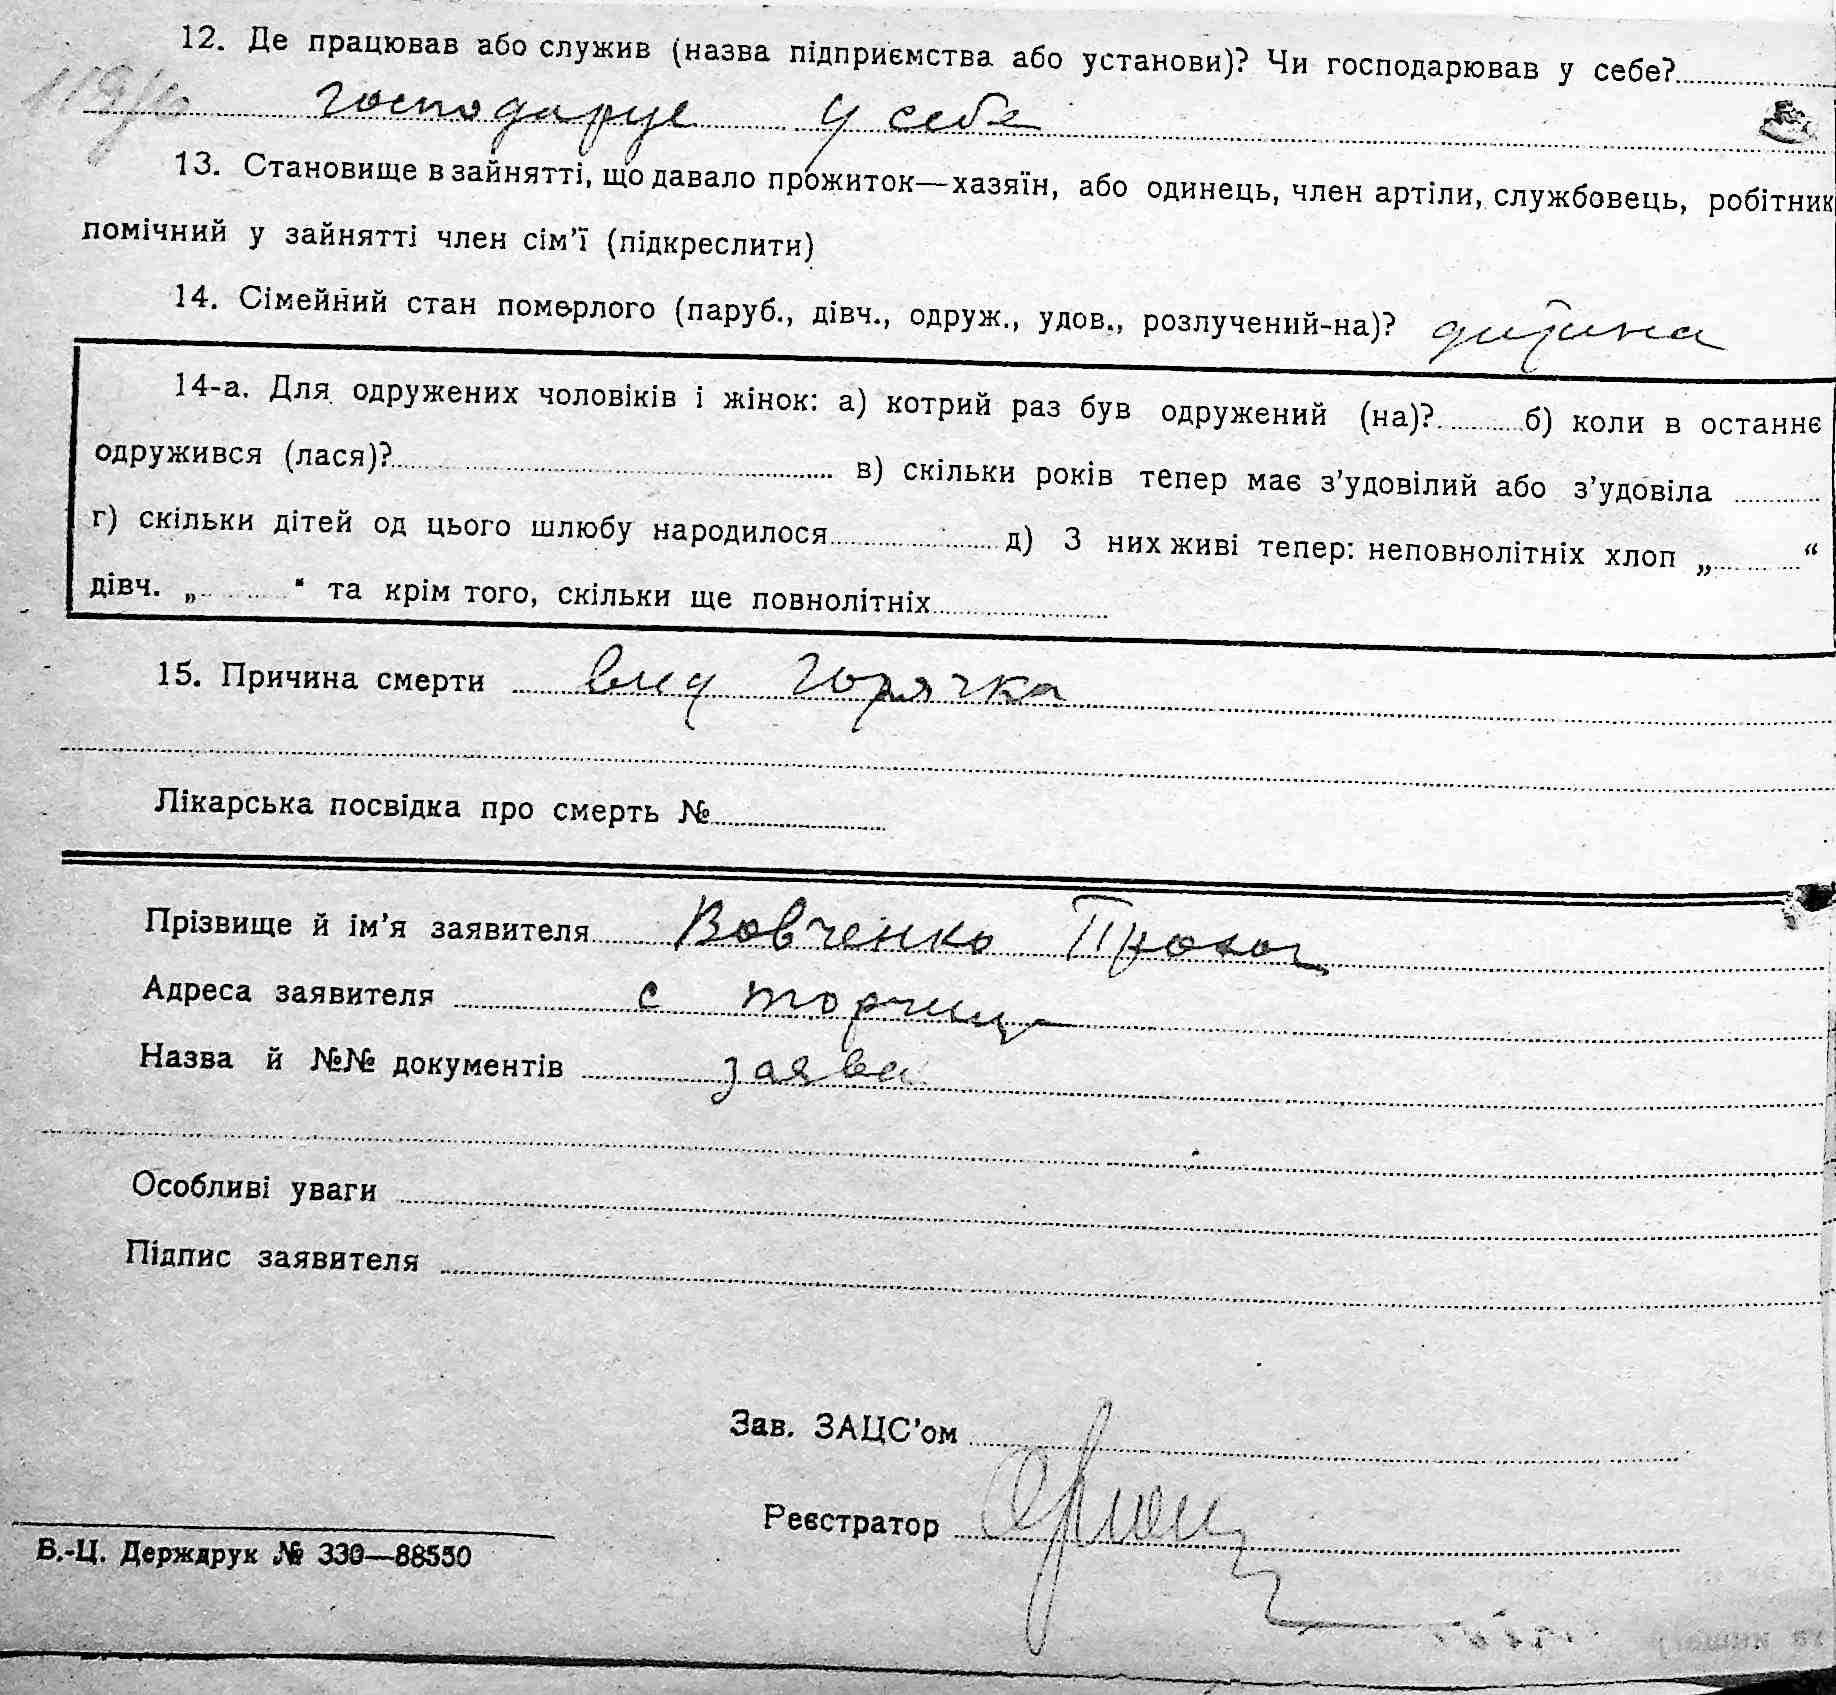 12. Де працював або служив (назва підприємства або установи)? Чи господарював у себе?
господарує у себе
13. Становище в зайнятті, що давало прожиток—хазяїн, або одинець, член артіли, службовець, робітник
помічний у зайнятті член сім'ї (підкреслити)
14. Сімейний стан померлого (паруб., дівч., одруж., удов., розлучений-на)? дитина
14-а. Для одружених чоловіків і жінок: а) котрий раз був одружений (на)? б) коли в останнє
одружився (лася)? в) скільки років тепер має з'удовілий або з'удовіла
г) скільки дітей од цього шлюбу народилося д) З них живі тепер: неповнолітніх хлоп „ “
дівч. „ “ та крім того, скільки ще повнолітніх
15. Причина смерти вид горячка
Лікарська посвідка про смерть №
Прізвище й ім'я заявителя Вовченко
Адреса заявителя с торчиц
Назва й №№ документів заява
Особливі уваги
Підпис заявителя
Зав. ЗАЦС'ом
Реєстратор
В.-Ц. Держдрук № 330—88550